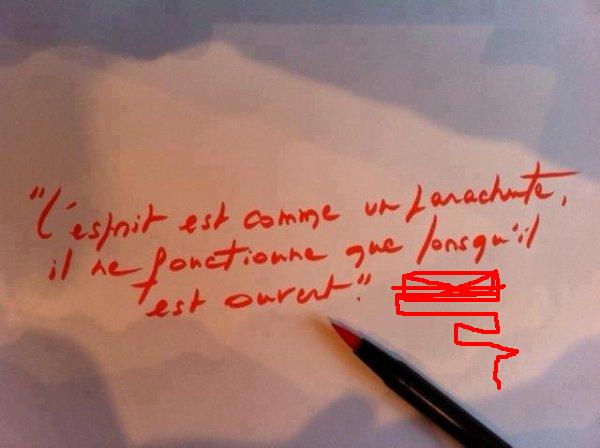 "L'esprit est comme un parachute,
il ne fonctionne que lorsqu'il
est ouvert."